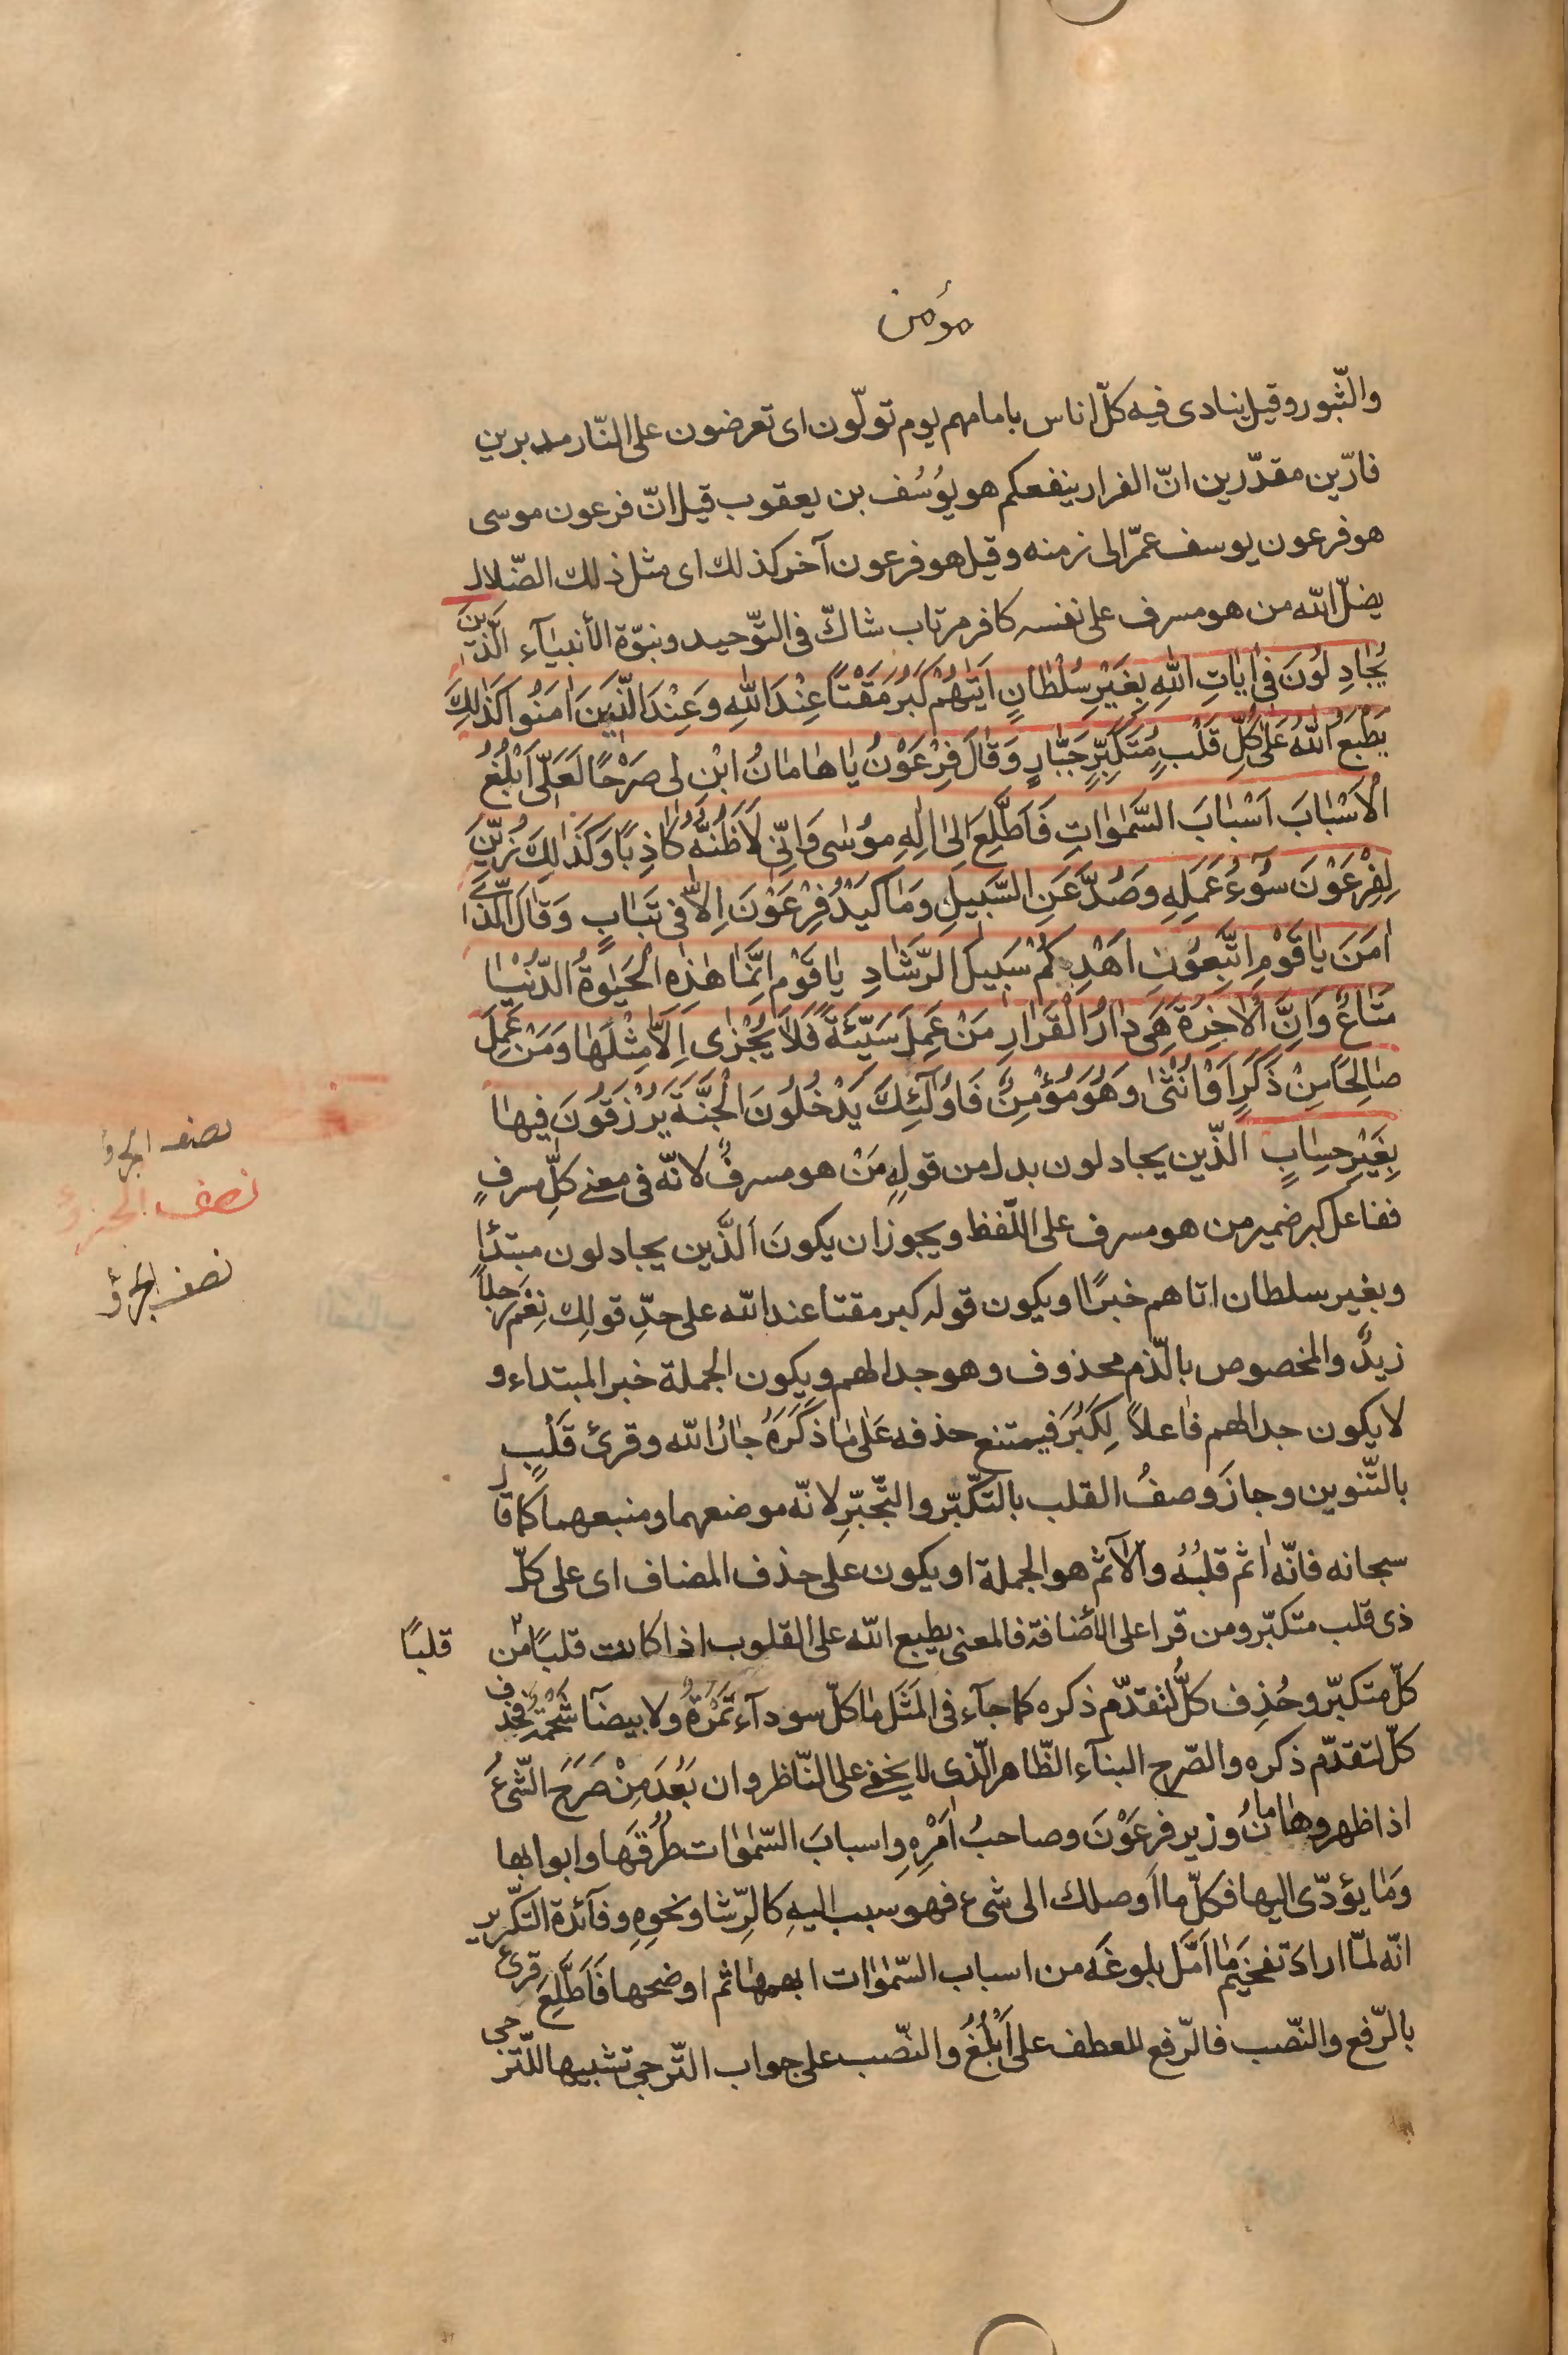 مؤمن
والثّبور وقيل ينادى فيه كلّ اناس بامامهم يوم تولّون اى تعرضون على النّار مدبرين
فارّين مقدّرين انّ الفرار ينفعكم هو يوُسُف بن يعقوب قيل انّ فرعون موسى
هو فرعون يوسف عمّر الى زمنه وقيل هو فرعون آخر كذلك اى مثل ذلك الضّلال
يضلّ الله من هو مسرف على نفسه كافر مرتاب شاكّ فى التّوحيد ونبوّة الأنبيآء الَّذينَ
يُجٰادِلوُنَ فى اٰيٰاتِ اللهِ بِغَيْرِ سُلْطٰانٍ اَتٰيهُمْ كَبُرَ مَقْتًا عِنْدَ اللهِ وَعِنْدَ الَّذينَ اٰمَنوُا كَذٰلِكَ
يَطْبَعُ اللهُ عَلىٰ كُلِّ قَلْبٍ مُتَكَبِّرٍ جَبّٰارٍ وَقٰالَ فِرْعَوْنُ يٰا هٰامٰانُ ابْنِ لى صَرْحًا لَعَلّى اَبْلُغُ
الْاَسْبٰابَ اَسْبٰابَ السَّمٰوٰاتِ فَاَطَّلِعَ اِلىٰ اِلٰهِ موُسٰى وَاِنّى لَاَظُنُّهُ كٰاذِبًا وَكَذٰلِكَ زُيِّنَ
لِفِرْعَوْنَ سُوٓءُ عَمَلِهِ وَصُدَّ عَنِ السَّبيلِ وَمٰا كَيْدُ فِرْعَوْنَ اِلّٰا فى تَبٰابٍ وَقٰالَ الَّذى
اٰمَنَ يٰا قَوْمِ اتَّبِعوُنِ اَهْدِكُمْ سَبيلَ الرَّشٰادِ يٰا قَوْمِ اِنَّمٰا هٰذِهِ الْحَيٰوةُ الدُّنْيٰا
مَتٰاعٌ وَاِنَّ الْاٰخِرَةَ هِىَ دٰارُ الْقَرٰارِ مَنْ عَمِلَ سَيِّئَةً فَلٰا يُجْزٰى اِلّٰا مِثْلَهٰا وَمَنْ عَمِلَ
صٰالِحًا مِنْ ذَكَرٍ اَوْ اُنْثىٰ وَهُوَ مُؤْمِنٌ فَاوُلٰٓئِكَ يَدْخُلُونَ الْجَنَّةَ يُرْزَقُونَ فيهٰا
نصف الجزؤ
بِغَيْرِ حِسٰابٍ الّذين يجادلون بدل من قولِهِ مَنْ هو مسرفٌ لانّه فى معنى كلِّ مسرفٍ
نصف الجزؤ
ففاعل كبر ضمير من هو مسرف على اللّفظ ويجوز ان يكونَ الَّذين يجادلون مبتدًا
نصف الجزؤ
وبغير سلطان اتاهم خبرًا ويكون قوله كبر مقتا عند الله على حدِّ قولِك نِعْمَ رجلاً
زيدٌ والمخصوص بالّذم محذوف وهو جدالهم ويكون الجملة خبر المبتداء و
لا يكون جدالهم فاعلاً لِكَبُرَ فيمتنع حذفه عَلىٰ مٰا ذَكَرَهُ جٰارُ الله وقرئ قَلْبٍ
بالتّنوين وجازَ وصفُ القلب بالتّكبّر والتّجبّرِ لانّه موضعهما ومنبعهما كما قال
سبحانه فانّه اٰثم قلبُهُ والآثم هو الجملة او يكون على حذف المضاف اى على كلّ
ذى قلب متكبّر ومن قرا على الأضافة فالمعنى يطبع الله على القلوب اذا كانت قلبًا من قلبًا
كلّ متكبّر وحُذِف كلٌّ لتقدّم ذكره كما جآء فى المَثَل مٰا كلّ سودآء تَمْرَةً ولا بيضآ شَحْمَةً فحذف
كلّ لتقدّم ذكره والصّرح البنآء الظّاهر الّذى لا يخفى على النّاظر وان بَعُدَ مِنْ صَرَحَ الشّىءُ
اذا ظهر وهٰامانُ وزير فرعَوْنَ وصاحبُ اَمْرِهِ واسبابَ السّمٰوٰات طُرُقَهٰا وابوابها
وَمٰا يؤدّى اليها فكلّ ما اَوصلك الى شىء فهو سبب اليهِ كالرِّشا ونحوِهِ وفآئدة التكرير
انّه لمّا ارادَ تفخيمَ مٰا اَمَّل بلوغَه من اسباب السّمٰوٰات ابهمهٰا ثم اوضحها فَاَطَّلِعَ قرئ
بالرّفع والنّصب فالرّفع للعطف على اَبْلُغُ والنّصب على جواب التّرجى تشبيها للتّرجى